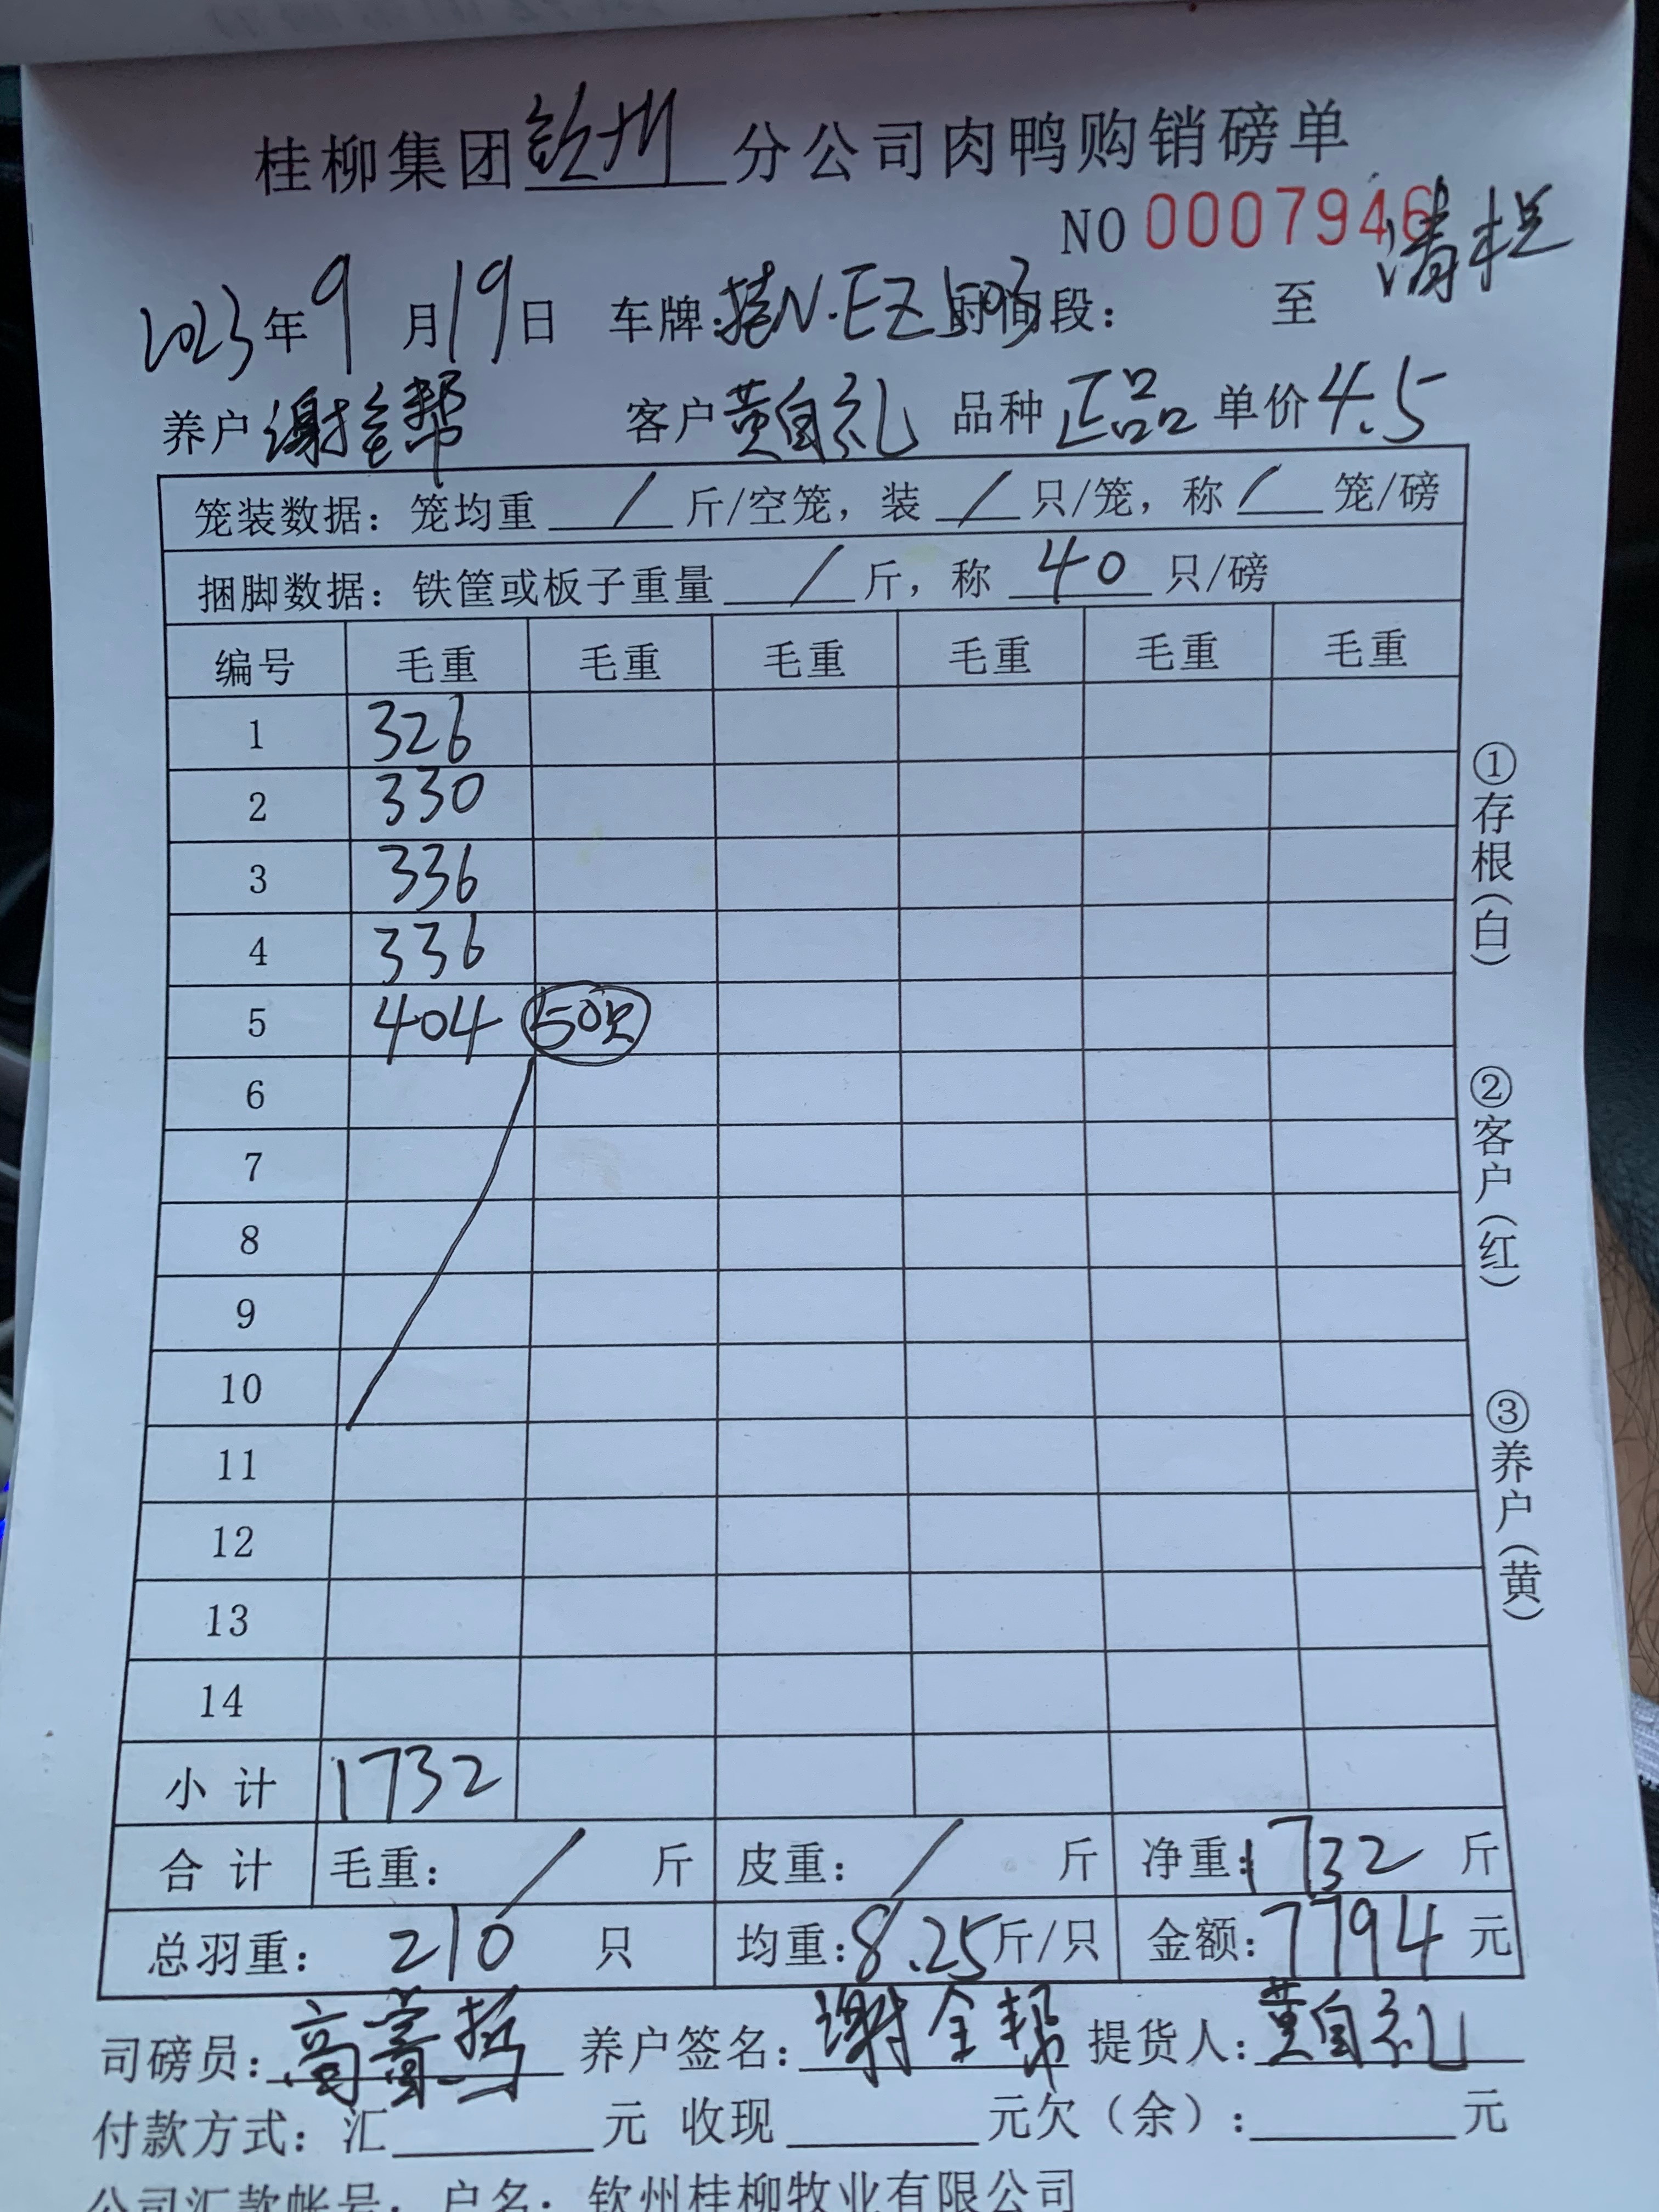 桂柳集团钦州分公司肉鸭购销磅单
NO 0007946
清栏
2023年9月19日 车牌:桂N·EZ503 时间段: 至
养户 谢全帮 客户 黄自礼 品种 正品 单价 4.5
笼装数据: 笼均重 / 斤/空笼, 装 / 只/笼, 称 / 笼/磅
捆脚数据: 铁筐或板子重量 / 斤, 称 40 只/磅
编号 毛重 毛重 毛重 毛重 毛重 毛重
1 326
2 330
3 336
4 336
5 404 50只
6
7
8
9
10
11
12
13
14
小计 1732
合计 毛重: / 斤 皮重: / 斤 净重: 1732 斤
总羽重: 210 只 均重: 8.25 斤/只 金额: 7794 元
司磅员: 高 养户签名: 谢全帮 提货人: 黄自礼
付款方式: 汇 元 收现 元欠(余): 元
公司汇款帐号: 户名: 钦州桂柳牧业有限公司
①存根(白)
②客户(红)
③养户(黄)